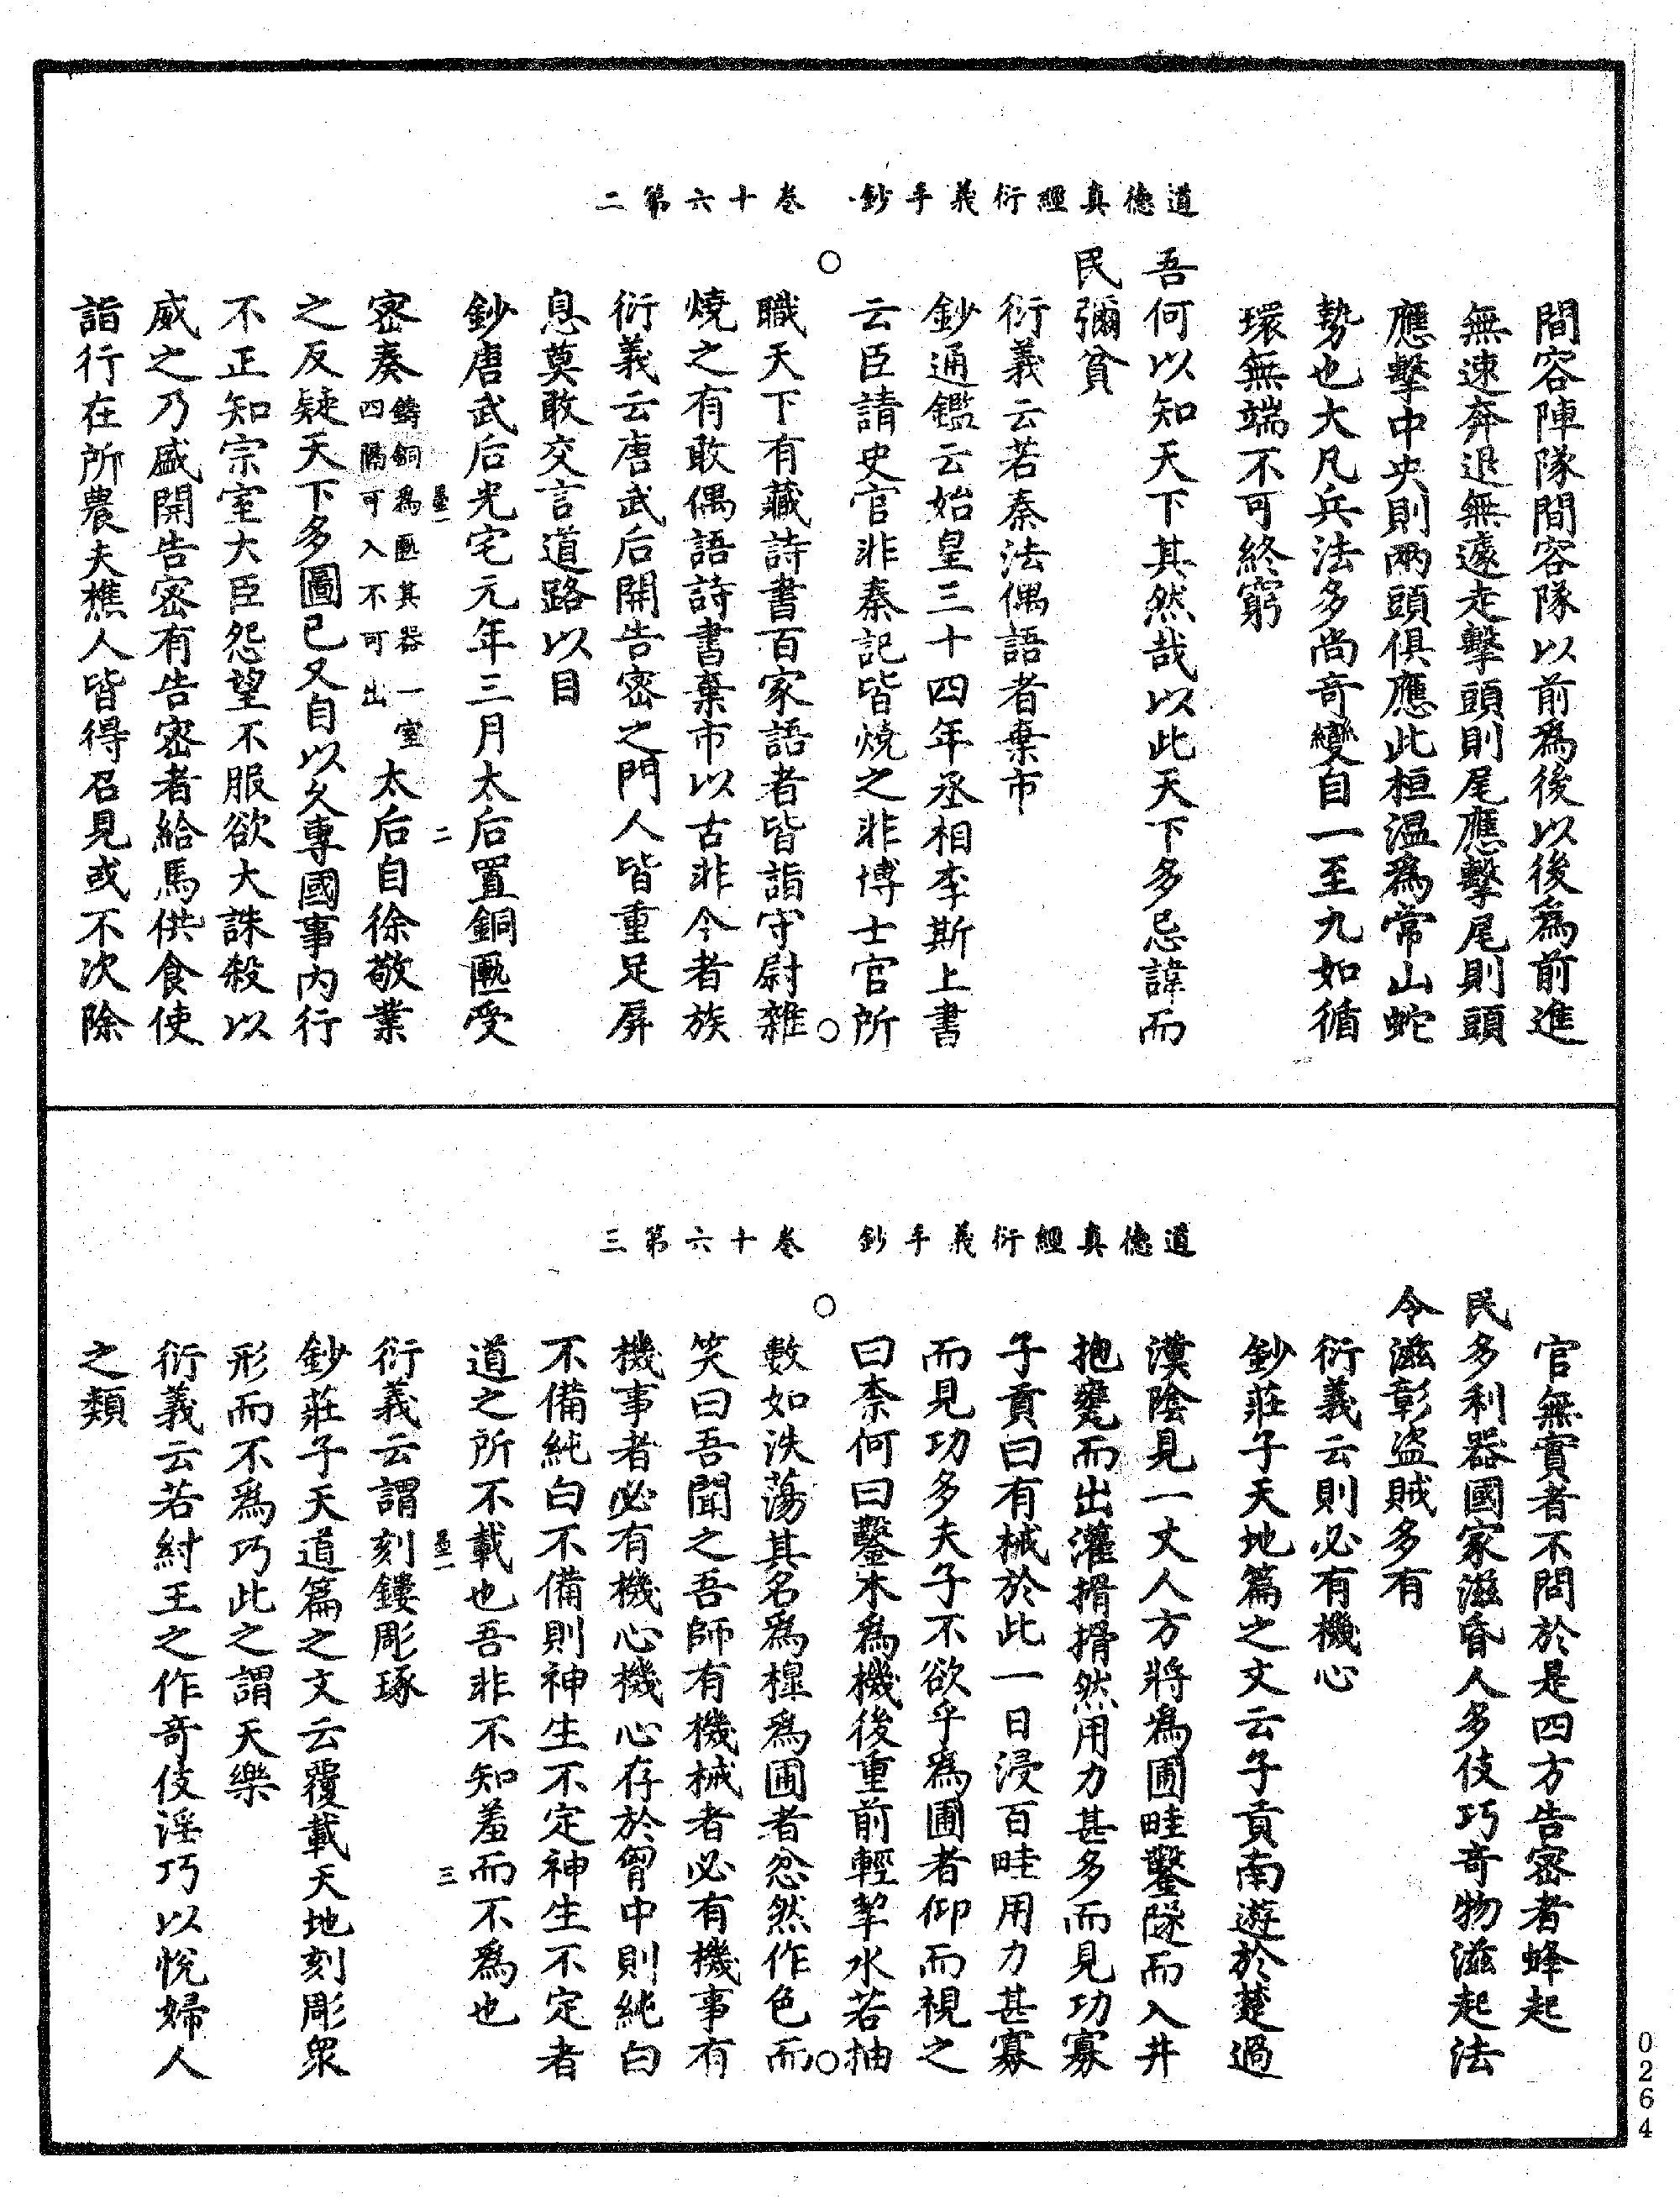 道德真經衍義手鈔 卷十六第二
間容陣隊間容隊以前為後以後為前進
無速奔退無遽走擊頭則尾應擊尾則頭
應擊中央則兩頭俱應此桓溫為常山蛇
勢也大凡兵法多尚奇變自一至九如循
環無端不可終窮
吾何以知天下其然哉以此天下多忌諱而
民彌貧
衍義云若秦法偶語者棄市
鈔通鑑云始皇三十四年丞相李斯上書
云臣請史官非秦記皆燒之非博士官所
職天下有藏詩書百家語者皆詣守尉雜
燒之有敢偶語詩書棄市以古非今者族
衍義云唐武后開告密之門人皆重足屏
息莫敢交言道路以目
鈔唐武后光宅元年三月太后置銅匭受
墨一 二
密奏鑄銅為匭其器一室四隔可入不可出太后自徐敬業
之反疑天下多圖已又自以久專國事內行
不正知宗室大臣怨望不服欲大誅殺以
威之乃盛開告密有告密者給馬供食使
詣行在所農夫樵人皆得召見或不次除
道德真經衍義手鈔 卷十六第三
官無實者不問於是四方告密者蜂起
民多利器國家滋昏人多伎巧奇物滋起法
令滋彰盜賊多有
衍義云則必有機心
鈔莊子天地篇之文云子貢南遊於楚過
漢陰見一丈人方將為圃畦鑿隧而入井
抱甕而出灌搰搰然用力甚多而見功寡
子貢曰有械於此一日浸百畦用力甚寡
而見功多夫子不欲乎為圃者仰而視之
曰柰何曰鑿木為機後重前輕挈水若抽
數如泆蕩其名為槹為圃者忿然作色而
笑曰吾聞之吾師有機械者必有機事有
機事者必有機心機心存於胷中則純白
不備純白不備則神生不定神生不定者
道之所不載也吾非不知羞而不為也
墨一 三
衍義云謂刻鏤彫琢
鈔莊子天道篇之文云覆載天地刻彫眾
形而不為巧此之謂天樂
衍義云若紂王之作奇伎淫巧以悅婦人
之類
0264